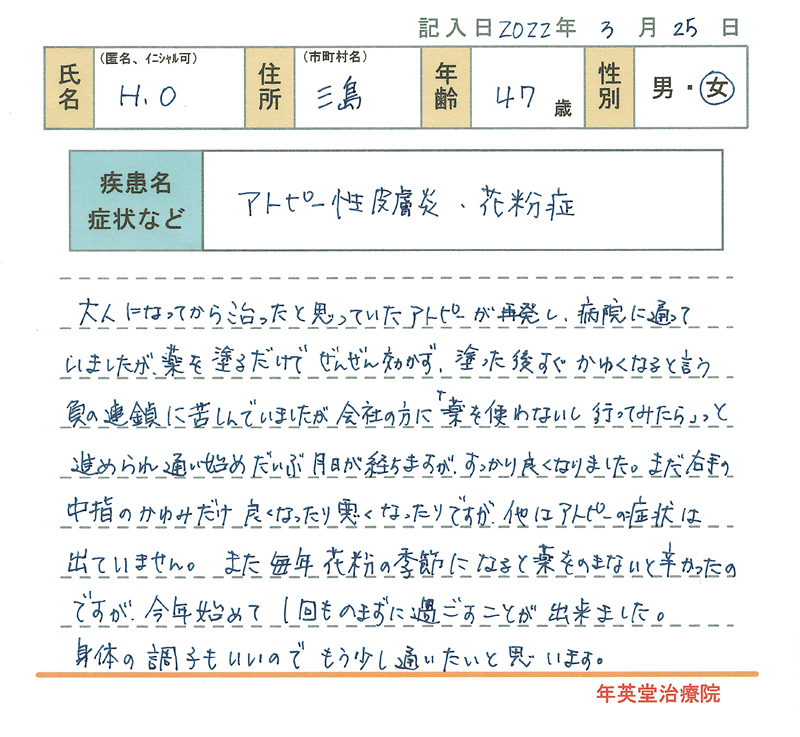 記入日2022年 3月25日
氏名 (匿名、イニシャル可) H.O 住所 (市町村名) 三島 年齢 47歳 性別 男・女
疾患名 症状など アトピー性皮膚炎、花粉症
大人になってから治ったと思っていたアトピーが再発し、病院に通って
いましたが、薬を塗るだけでぜんぜん効かず、塗った後すぐかゆくなると言う
負の連鎖に苦しんでいましたが会社の方に「薬を使わないし行ってみたら」っと
進められ通い始めだいぶ月日が経ちますが、すっかり良くなりました。まだ右手の
中指のかゆみだけ良くなったり悪くなったりですが、他はアトピーの症状は
出ていません。また毎年花粉の季節になると薬をのまないと辛かったの
ですが、今年始めて1回ものまずに過ごすことが出来ました。
身体の調子もいいのでもう少し通いたいと思います。
年英堂治療院